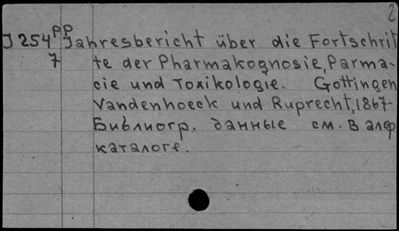 2
J 254 pp Jahresbericht über die Fortschrit
7 te der Pharmakognosie, Parma-
cie und Toxikologie. Gottingen
Vandenhoeck und Ruprecht, 1867-
Библиогр. данные см. в алф
каталоге.